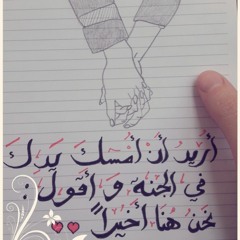 أريد أن أمسك يدك
في الجنة و أقول :
نحن هنا أخيراً